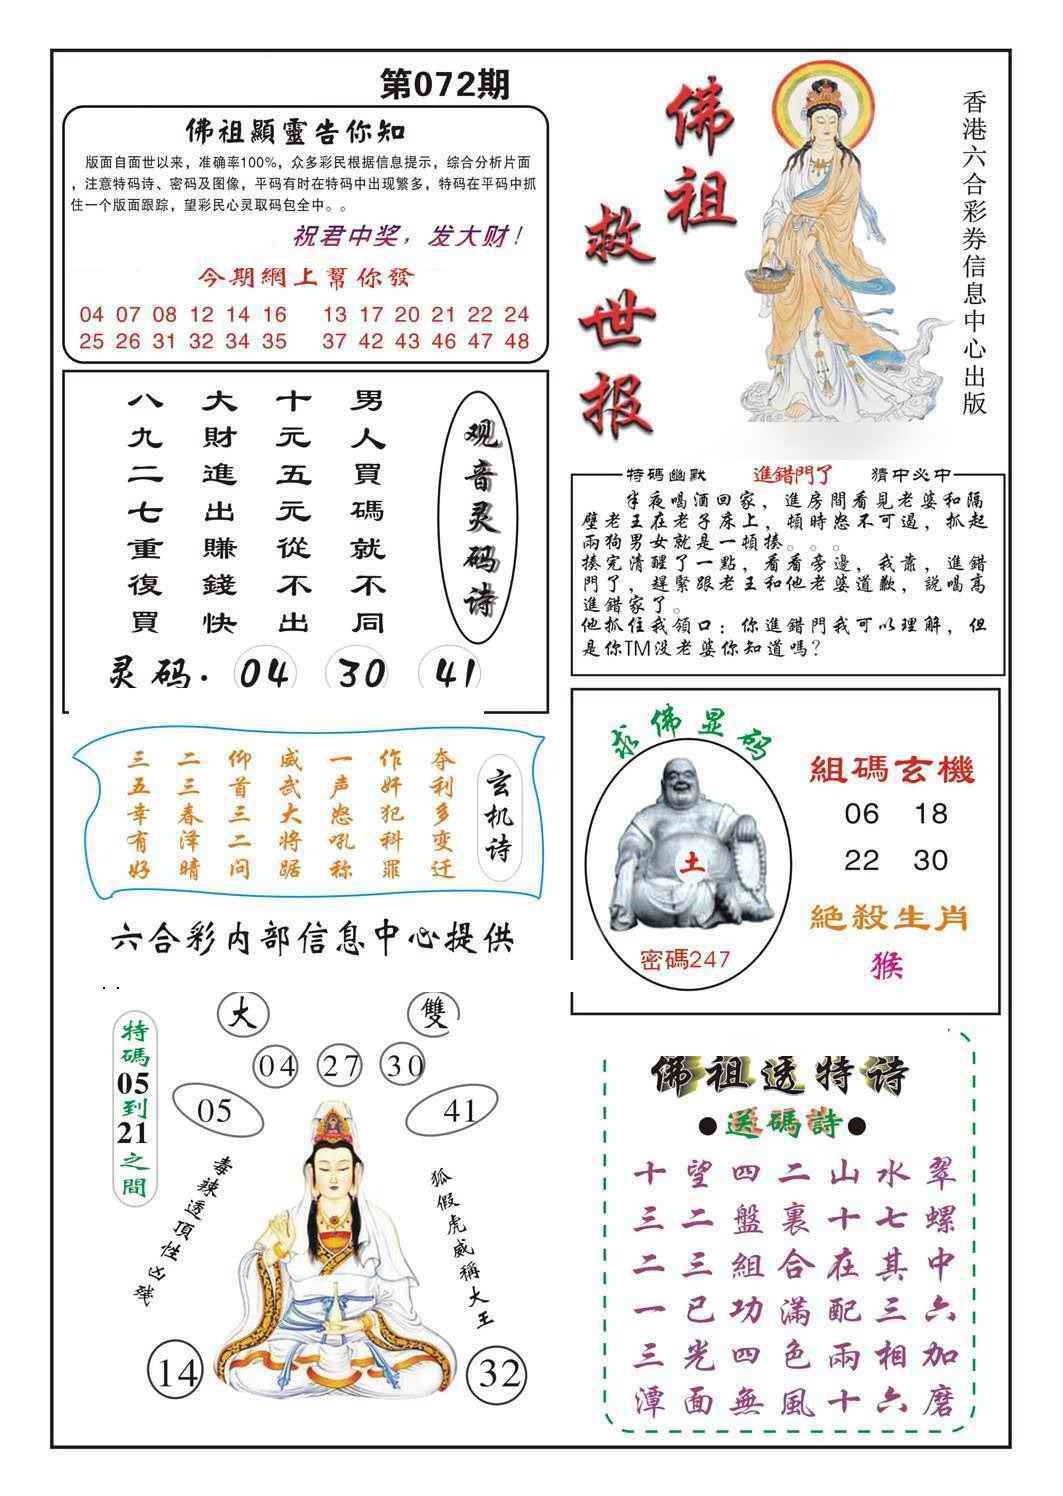 第072期
佛祖顯靈告你知
版面自面世以来，准确率100%，众多彩民根据信息提示，综合分析片面
，注意特码诗、密码及图像，平码有时在特码中出现繁多，特码在平码中抓
住一个版面跟踪，望彩民心灵取码包全中。。
祝君中奖，发大财！
今期網上幫你發
04 07 08 12 14 16 13 17 20 21 22 24
25 26 31 32 34 35 37 42 43 46 47 48
佛祖
救世报
香港六合彩券信息中心出版
观音灵码诗
男人買碼就不同
十元五元從不出
大財進出賺錢快
八九二七重復買
灵码. 04 30 41
特碼幽默 進錯門了 猜中必中
半夜喝酒回家，進房間看見老婆和隔
壁老王在老子床上，頓時怒不可遏，抓起
兩狗男女就是一頓揍。。。
揍完清醒了一點，看看旁邊，我靠，進錯
門了，趕緊跟老王和他老婆道歉，説喝高
進錯家了。
他抓住我領口：你進錯門我可以理解，但
是你TM没老婆你知道嗎？
玄机诗
夺利多变迁
作奸犯科罪
一声怒吼称
威武大将踞
仰首三二问
二三春泽晴
三五幸有好
六合彩内部信息中心提供
求佛显码
土
密碼247
組碼玄機
06 18
22 30
絕殺生肖
猴
特碼05到21之間
大 雙
04 27 30
05 41
毒辣透頂性凶残
狐假虎威稱大王
14 32
佛祖透特诗
●送碼詩●
十望四二山水翠
三二盤裏十七螺
二三組合在其中
一已功滿配三六
三光四色兩相加
潭面無風十六磨